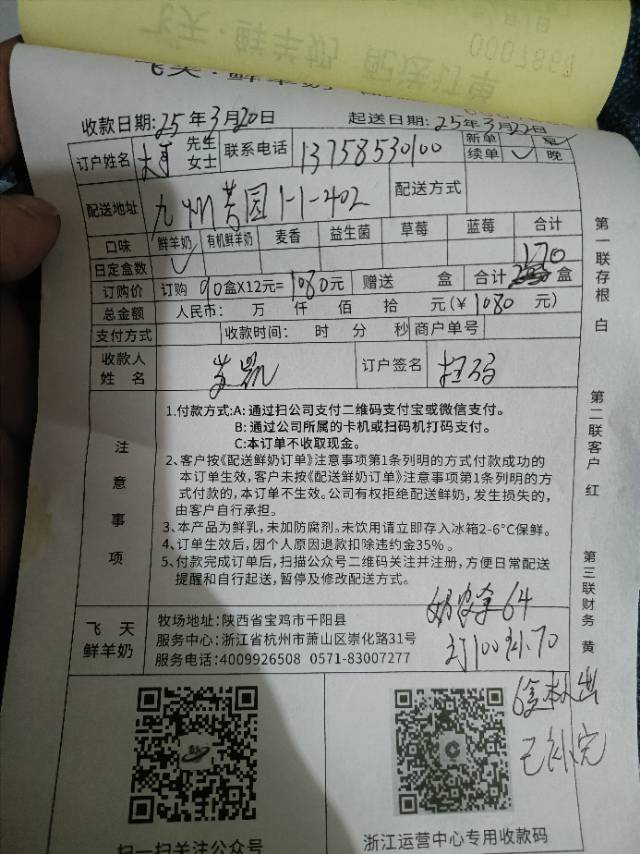 飞天·鲜羊奶 配送订单
0007868
收款日期:25年3月20日 起送日期:25年3月22日
订户姓名 先生 女士 联系电话 13758530100 新单 早
续单 ✓ 晚
配送地址 九州芳园1-1-402 配送方式
口味 鲜羊奶 有机鲜羊奶 麦香 益生菌 草莓 蓝莓 合计
日定盒数 ✓ 170
订购价 订购90盒X12元=1080元 赠送 盒 合计 盒
总金额 人民币: 万 仟 佰 拾 元(¥1080 元)
支付方式 收款时间: 时 分 秒 商户单号
收款人姓名 订户签名 扫码
注意事项
1.付款方式:A: 通过扫公司支付二维码支付宝或微信支付。
B: 通过公司所属的卡机或扫码机打码支付。
C:本订单不收取现金。
2、客户按《配送鲜奶订单》注意事项第1条列明的方式付款成功的
本订单生效,客户未按《配送鲜奶订单》注意事项第1条列明的方
式付款的,本订单不生效。公司有权拒绝配送鲜奶,发生损失的,
由客户自行承担。
3、本产品为鲜乳,未加防腐剂。未饮用请立即存入冰箱2-6°C保鲜。
4、订单生效后,因个人原因退款扣除违约金35%。
5、付款完成订单后,扫描公众号二维码关注并注册,方便日常配送
提醒和自行起送,暂停及修改配送方式。
64
订100补70
飞天鲜羊奶
牧场地址:陕西省宝鸡市千阳县
服务中心:浙江省杭州市萧山区崇化路31号
服务电话:4009926508 0571-83007277
已补完
扫一扫关注公众号
浙江运营中心专用收款码
第一联存根 白
第二联客户 红
第三联财务 黄